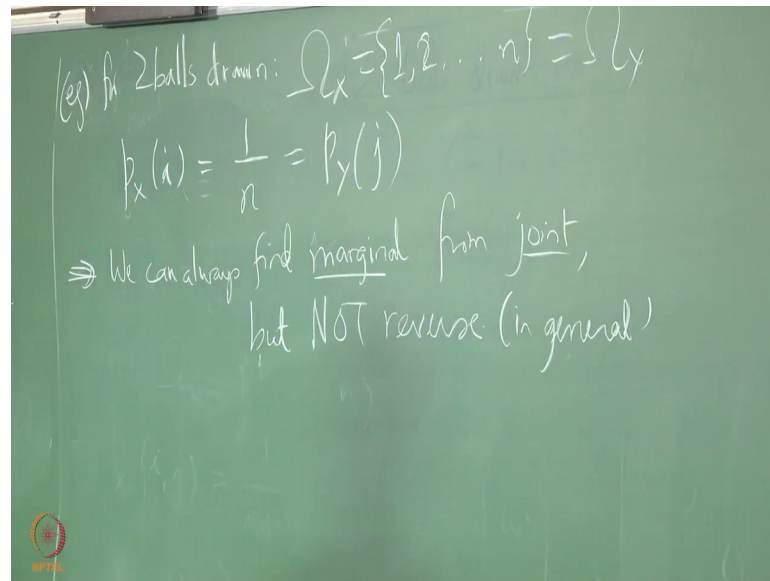 (eg) for 2 balls drawn: Ω_X = {1, 2 ... n} = Ω_Y
p_X(i) = 1/n = p_Y(j)
⇒ We can always find marginal from joint,
but NOT reverse (in general)
NPTEL